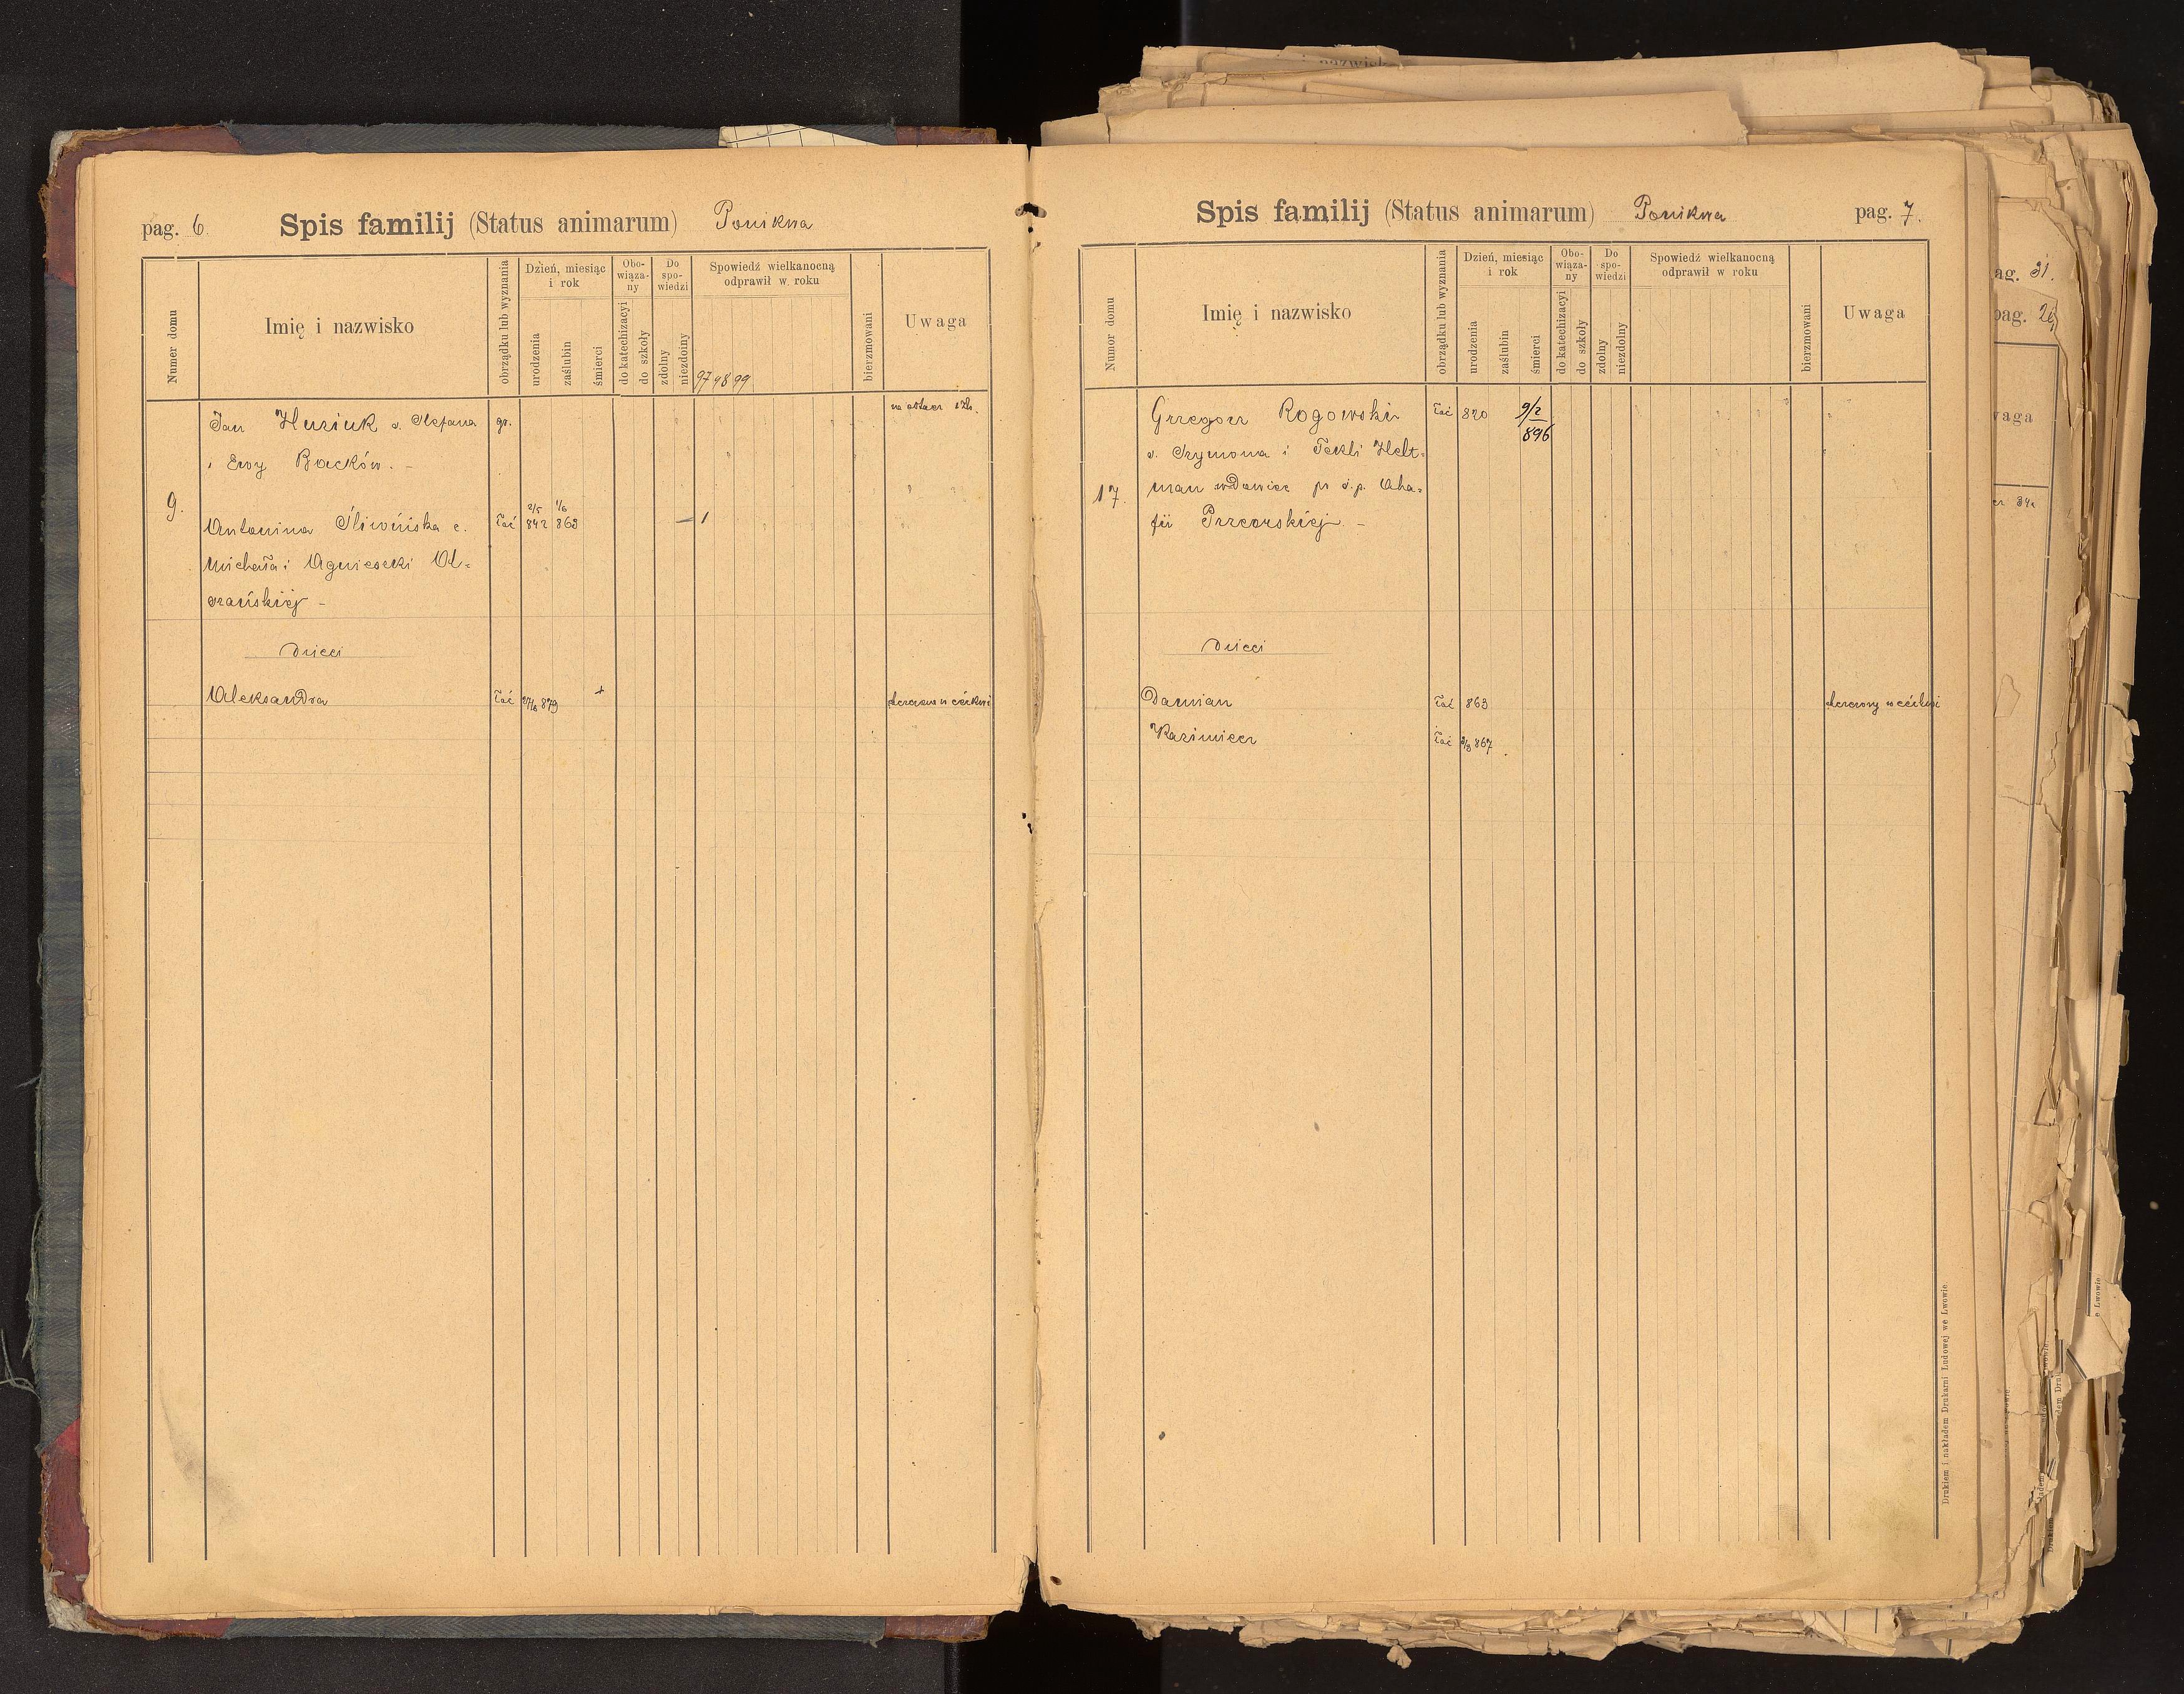 pag. 6.
Spis familij (Status animarum) Ponikwa
Numer domu
Imię i nazwisko
obrządku lub wyznania
Dzień, miesiąc i rok
urodzenia
zaślubin
śmierci
Obo-
wiąza-
ny
do katechizacyi
do szkoły
Do
spo-
wiedzi
zdolny
niezdolny
Spowiedź wielkanocną
odprawił w roku
97 98 99
bierzmowani
Uwaga
Jan Husiuk s. Stefana gr.
i Ewy Backów. -
9.
Antonina Śliwińska c. łać 2/5 842 1/6 863 – 1
Michała i Agnieszki Ol=
szańskiej -
Dzieci
Aleksandra łać 879 + chrzczona w cerkwi
pag. 7.
Spis familij (Status animarum) Ponikwa
Numor domu
Imię i nazwisko
obrządku lub wyznania
Dzień, miesiąc
i rok
urodzenia
zaślubin
śmierci
Obo-
wiąza-
ny
do katechizacyi
do szkoły
Do
spo-
wiedzi
zdolny
niezdolny
Spowiedź wielkanocną
odprawił w roku
bierzmowani
Uwaga
Grzegorz Rogowski łać 820 9/2 896
s. Szymona i Tekli Helt=
17.
man wdowiec po ś.p. Aha=
fii Przeorskiej -
Dzieci
Damian łać 863 chrzczony w cerkwi
Kazimierz łać 867
Drukiem i nakładem Drukarni Ludowej we Lwowie.
ag. 31.
pag. 26